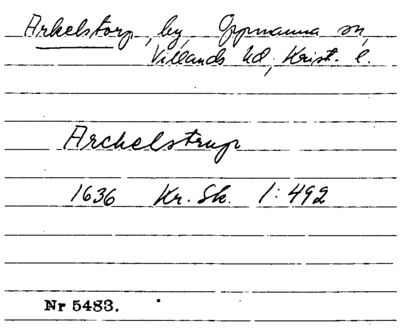 Arkelstorp, by, Oppmanna sn,
Villands hd, Krist. l.
Archelstrup
1636 Kr. Sk. 1:492
Nr 5483.